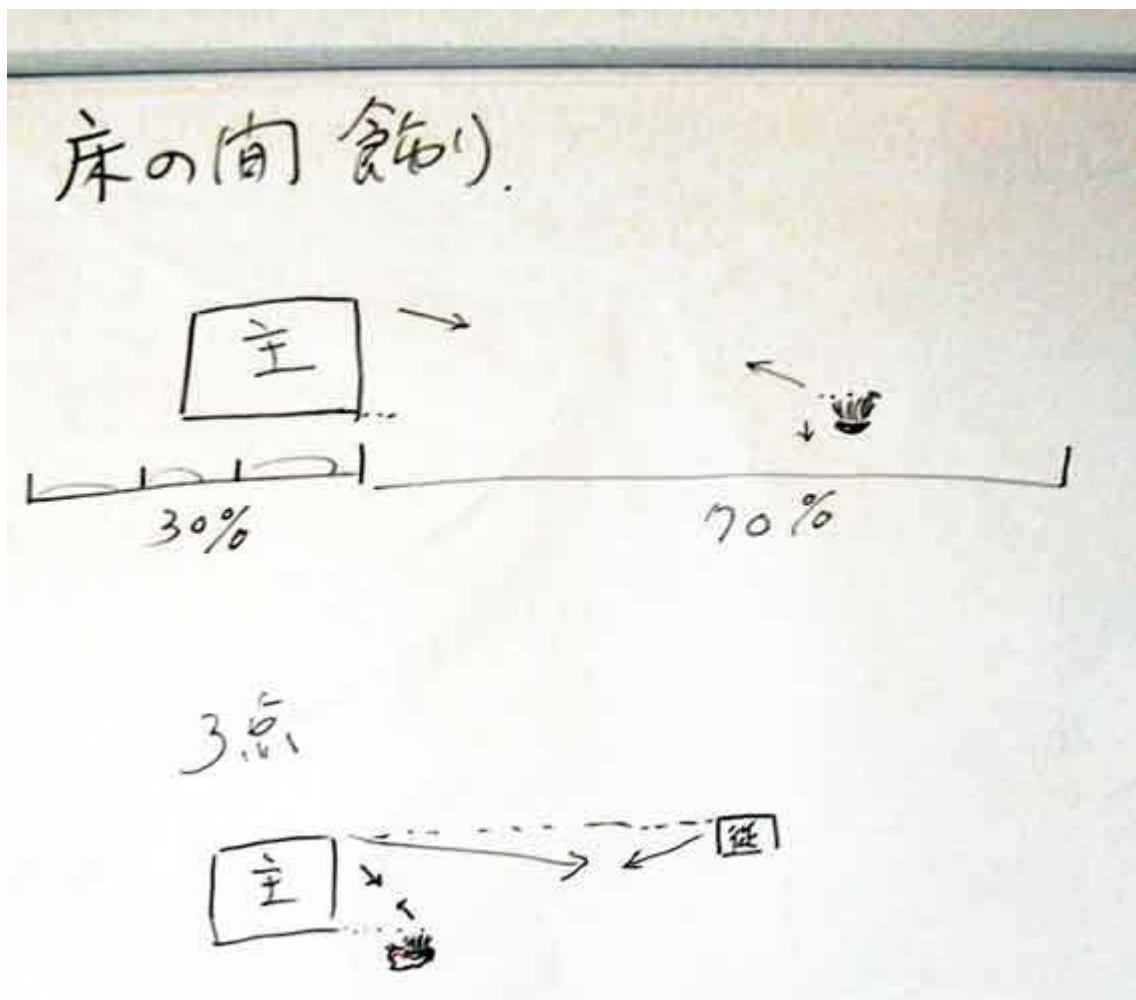 床の間 飾り.
主
30%
70%
3点
主
従